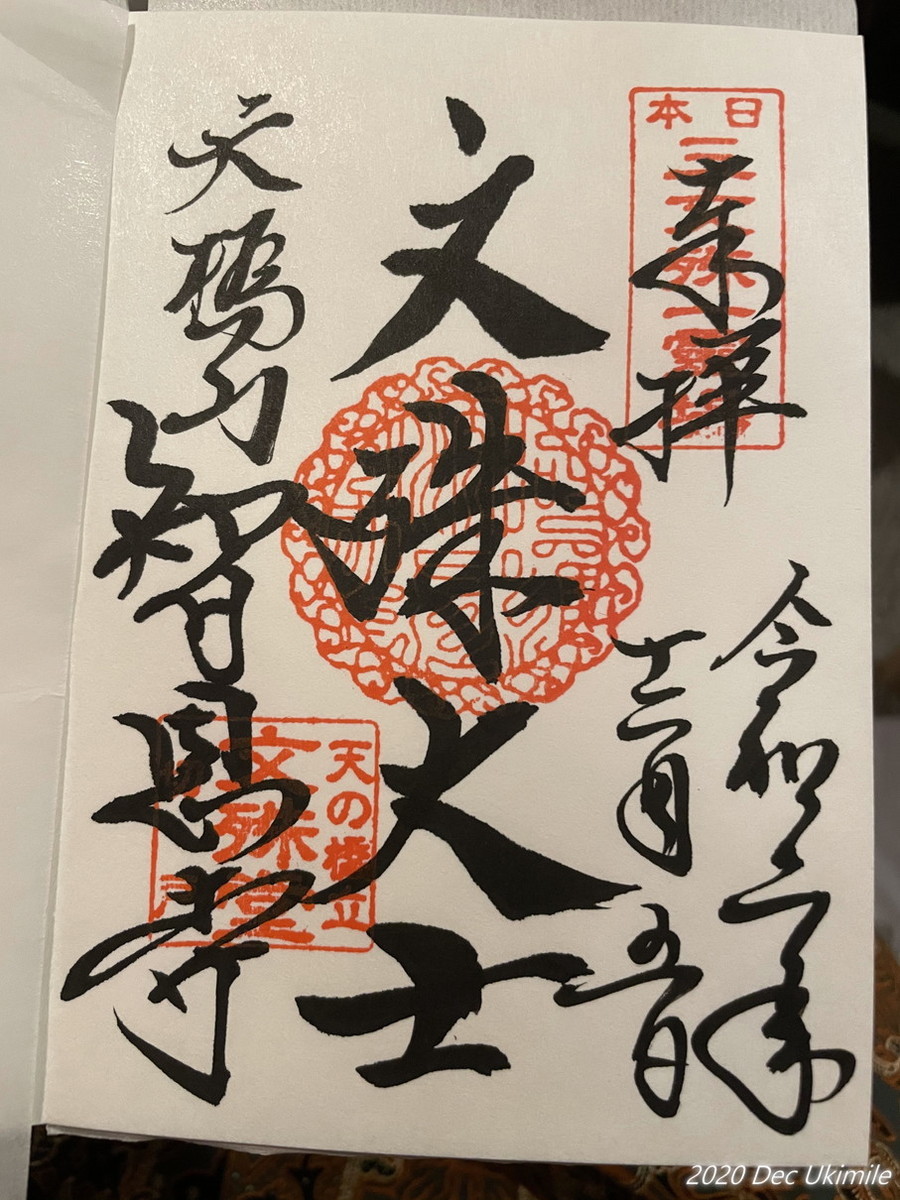 日本
三文殊
奉拝
令和二年
十二月五日
文殊大士
天橋山
智恩寺
天の橋立
文殊堂
2020 Dec Ukimile